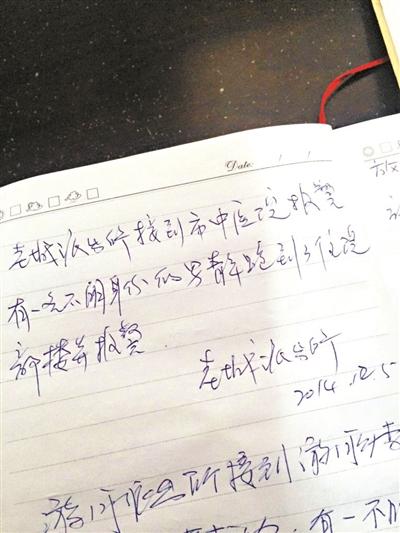 Date: / /
老城派出所接到市中医院报警
有一名不明身份的男青年跑到了住院
部楼并报警.
老城派出所
2014.12.5
派出所接到
有一不